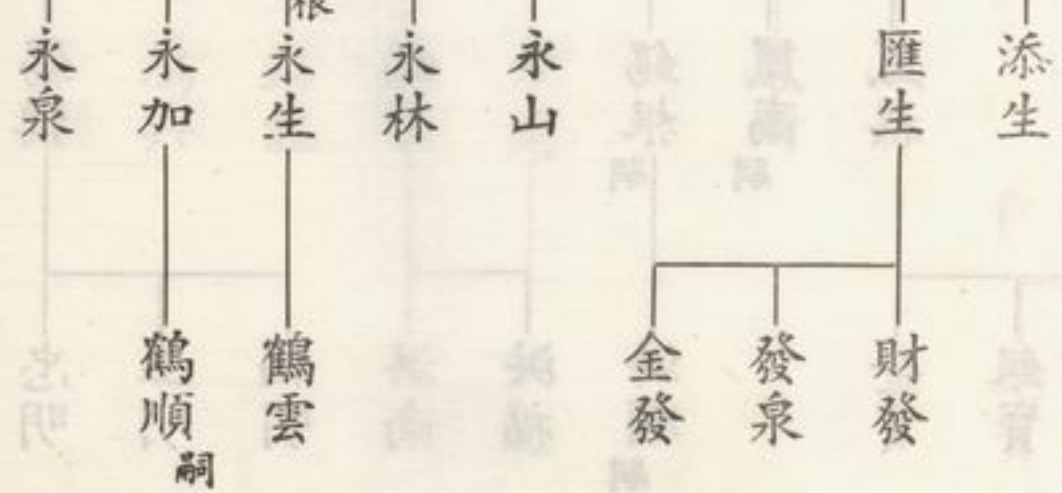 添生
匯生
永山
永林
永生
永加
永泉
財發
發泉
金發
鶴雲
鶴順
嗣